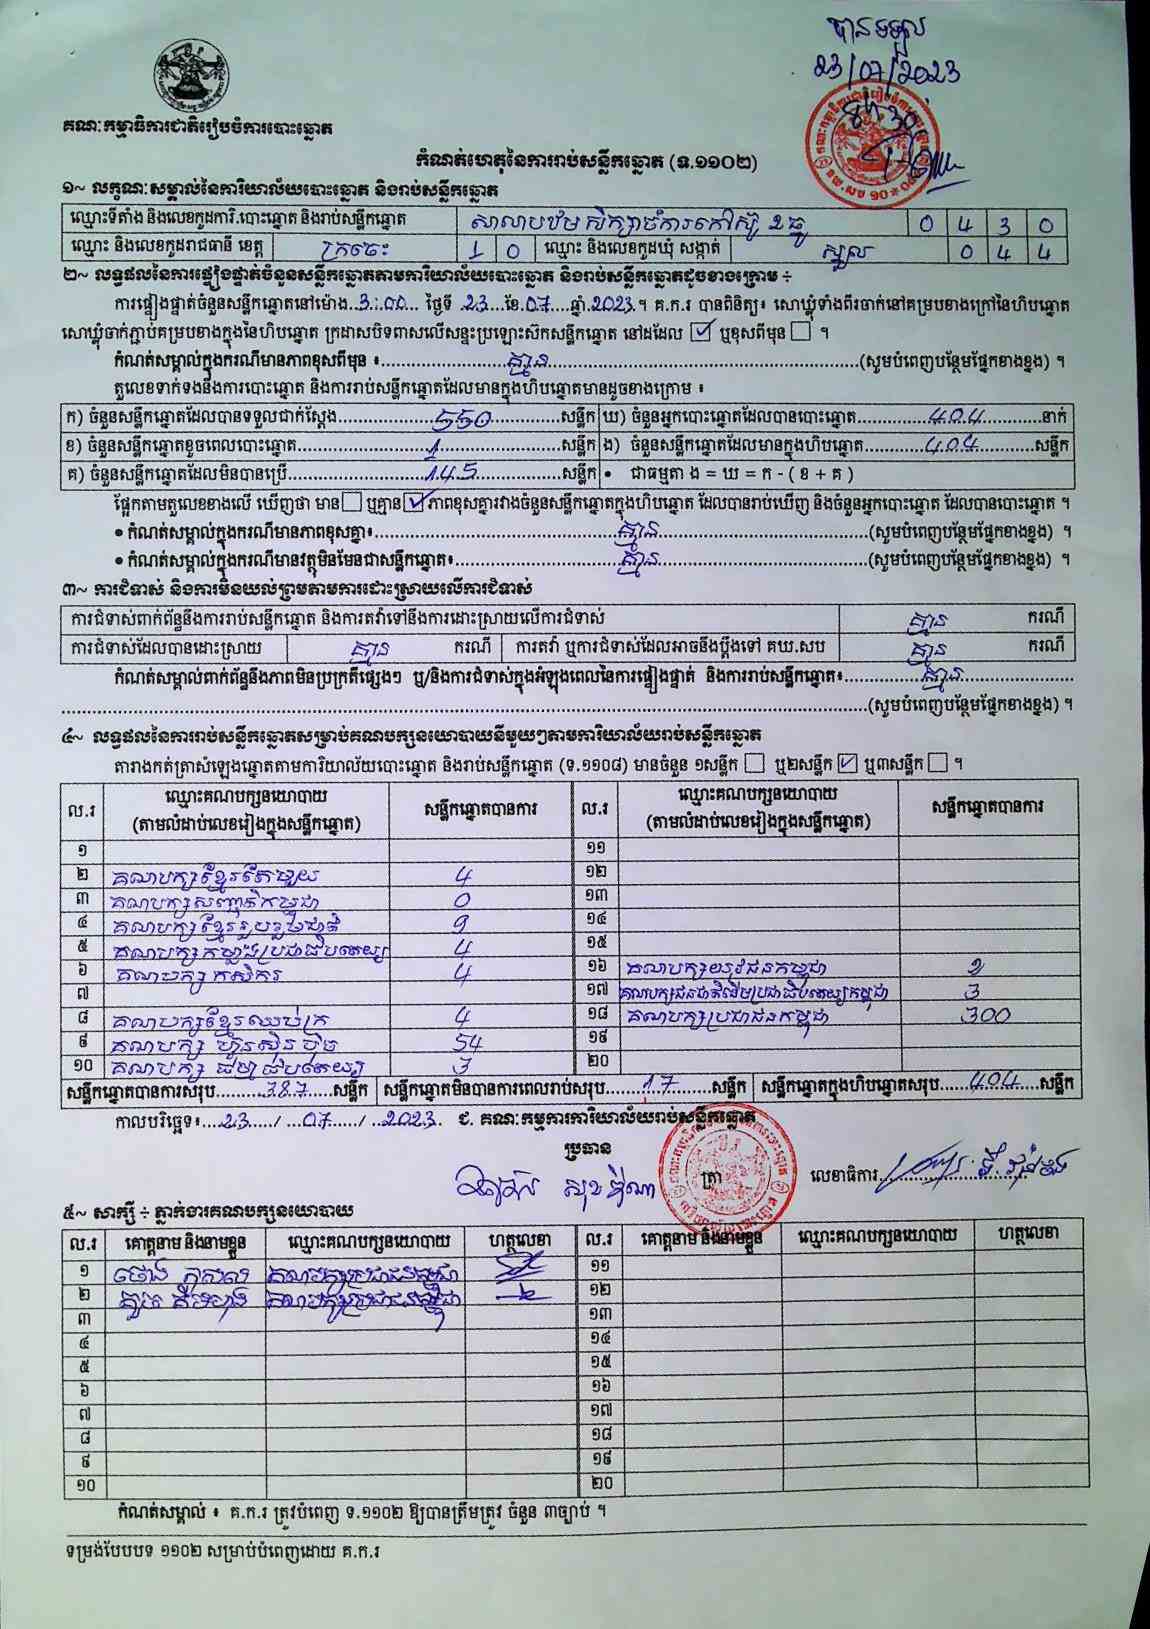 បានទទួល
23/07/2023
គណៈកម្មាធិការជាតិរៀបចំការបោះឆ្នោត
កំណត់ហេតុនៃការរាប់សន្លឹកឆ្នោត (ទ.១១០២)
១~ លក្ខណៈសម្គាល់នៃការិយាល័យបោះឆ្នោត និងរាប់សន្លឹកឆ្នោត
ឈ្មោះទីតាំង និងលេខកូដការិ.បោះឆ្នោត និងរាប់សន្លឹកឆ្នោត សាលាបឋមសិក្សាចំការកៅស៊ូ 0 4 3 0
ឈ្មោះ និងលេខកូដរាជធានី ខេត្ត ក្រចេះ 1 0 ឈ្មោះ និងលេខកូដឃុំ សង្កាត់ ស្នួល 0 4 4
២~ លទ្ធផលនៃការផ្ទៀងផ្ទាត់ចំនួនសន្លឹកឆ្នោតតាមការិយាល័យបោះឆ្នោត និងរាប់សន្លឹកឆ្នោតដូចខាងក្រោម ÷
ការផ្ទៀងផ្ទាត់ចំនួនសន្លឹកឆ្នោតនៅម៉ោង.3:00... ថ្ងៃទី .23...ខែ.07....ឆ្នាំ.2023.។ គ.ក.រ បានពិនិត្យ៖ សោឃ្លុំទាំងពីរចាក់នៅគម្របខាងក្រៅនៃហិបឆ្នោត
សោឃ្លុំចាក់ភ្ជាប់គម្របខាងក្នុងនៃហិបឆ្នោត ក្រដាសបិទពាសលើសន្ទះប្រឡោះស៊កសន្លឹកឆ្នោត នៅដដែល ☑ ឬខុសពីមុន ☐ ។
កំណត់សម្គាល់ក្នុងករណីមានភាពខុសពីមុន ៖..........គ្មាន..........(សូមបំពេញបន្ថែមផ្នែកខាងខ្នង) ។
តួលេខទាក់ទងនឹងការបោះឆ្នោត និងការរាប់សន្លឹកឆ្នោតដែលមានក្នុងហិបឆ្នោតមានដូចខាងក្រោម ៖
ក) ចំនួនសន្លឹកឆ្នោតដែលបានទទួលជាក់ស្តែង..........550..........សន្លឹក ឃ) ចំនួនអ្នកបោះឆ្នោតដែលបានបោះឆ្នោត..........404..........នាក់
ខ) ចំនួនសន្លឹកឆ្នោតខូចពេលបោះឆ្នោត..........1..........សន្លឹក ង) ចំនួនសន្លឹកឆ្នោតដែលមានក្នុងហិបឆ្នោត..........404..........សន្លឹក
គ) ចំនួនសន្លឹកឆ្នោតដែលមិនបានប្រើ..........145..........សន្លឹក • ជាធម្មតា ង = ឃ = ក - ( ខ + គ )
ផ្អែកតាមតួលេខខាងលើ ឃើញថា មាន☐ ឬគ្មាន☑ ភាពខុសគ្នារវាងចំនួនសន្លឹកឆ្នោតក្នុងហិបឆ្នោត ដែលបានរាប់ឃើញ និងចំនួនអ្នកបោះឆ្នោត ដែលបានបោះឆ្នោត ។
• កំណត់សម្គាល់ក្នុងករណីមានភាពខុសគ្នា៖..........គ្មាន..........(សូមបំពេញបន្ថែមផ្នែកខាងខ្នង) ។
• កំណត់សម្គាល់ក្នុងករណីមានវត្ថុមិនមែនជាសន្លឹកឆ្នោត៖..........គ្មាន..........(សូមបំពេញបន្ថែមផ្នែកខាងខ្នង) ។
៣~ ការជំទាស់ និងការមិនយល់ព្រមតាមការដោះស្រាយលើការជំទាស់
ការជំទាស់ពាក់ព័ន្ធនឹងការរាប់សន្លឹកឆ្នោត និងការតវ៉ាទៅនឹងការដោះស្រាយលើការជំទាស់ គ្មាន ករណី
ការជំទាស់ដែលបានដោះស្រាយ គ្មាន ករណី ការតវ៉ា ឬការជំទាស់ដែលអាចនឹងប្តឹងទៅ គឃ.សប គ្មាន ករណី
កំណត់សម្គាល់ពាក់ព័ន្ធនឹងភាពមិនប្រក្រតីផ្សេងៗ ឬ/និងការជំទាស់ក្នុងអំឡុងពេលនៃការផ្ទៀងផ្ទាត់ និងការរាប់សន្លឹកឆ្នោត៖..........គ្មាន..........
..........(សូមបំពេញបន្ថែមផ្នែកខាងខ្នង) ។
៤~ លទ្ធផលនៃការរាប់សន្លឹកឆ្នោតសម្រាប់គណបក្សនយោបាយនីមួយៗតាមការិយាល័យរាប់សន្លឹកឆ្នោត
តារាងកត់ត្រាសំឡេងឆ្នោតតាមការិយាល័យបោះឆ្នោត និងរាប់សន្លឹកឆ្នោត (ទ.១១០៨) មានចំនួន ១សន្លឹក ☐ ឬ២សន្លឹក ☑ ឬ៣សន្លឹក ☐ ។
ល.រ ឈ្មោះគណបក្សនយោបាយ (តាមលំដាប់លេខរៀងក្នុងសន្លឹកឆ្នោត) សន្លឹកឆ្នោតបានការ ល.រ ឈ្មោះគណបក្សនយោបាយ (តាមលំដាប់លេខរៀងក្នុងសន្លឹកឆ្នោត) សន្លឹកឆ្នោតបានការ
១ ១១
២ គណបក្សខ្មែរតែមួយ 4 ១២
៣ គណបក្សសញ្ជាតិកម្ពុជា 0 ១៣
៤ គណបក្សខ្មែររួបរួមជាតិ 9 ១៤
៥ គណបក្សកម្លាំងប្រជាធិបតេយ្យ 4 ១៥
៦ គណបក្សកសិករ 4 ១៦ គណបក្សយុវជនកម្ពុជា 2
៧ ១៧ គណបក្សជនជាតិដើមប្រជាធិបតេយ្យកម្ពុជា 3
៨ គណបក្សខ្មែរឈប់ក្រ 4 ១៨ គណបក្សប្រជាជនកម្ពុជា 300
៩ គណបក្ស ហ៊្វុនស៊ិនប៉ិច 54 ១៩
១០ គណបក្ស ធម្មាធិបតេយ្យ 3 ២០
សន្លឹកឆ្នោតបានការសរុប..........387.......សន្លឹក សន្លឹកឆ្នោតមិនបានការពេលរាប់សរុប.......17.......សន្លឹក សន្លឹកឆ្នោតក្នុងហិបឆ្នោតសរុប......404....សន្លឹក
កាលបរិច្ឆេទ៖....23...../ ...07...../ ..2023. ជ. គណៈកម្មការការិយាល័យរាប់សន្លឹកឆ្នោត
ប្រធាន
ត្រា
លេខាធិការ
៥~ សាក្សី ÷ ភ្នាក់ងារគណបក្សនយោបាយ
ល.រ គោត្តនាម និងនាមខ្លួន ឈ្មោះគណបក្សនយោបាយ ហត្ថលេខា ល.រ គោត្តនាម និងនាមខ្លួន ឈ្មោះគណបក្សនយោបាយ ហត្ថលេខា
១ គណបក្សប្រជាជនកម្ពុជា ១១
២ គណបក្សប្រជាជនកម្ពុជា ១២
៣ ១៣
៤ ១៤
៥ ១៥
៦ ១៦
៧ ១៧
៨ ១៨
៩ ១៩
១០ ២០
កំណត់សម្គាល់ ៖ គ.ក.រ ត្រូវបំពេញ ទ.១១០២ ឱ្យបានត្រឹមត្រូវ ចំនួន ៣ច្បាប់ ។
ទម្រង់បែបបទ ១១០២ សម្រាប់បំពេញដោយ គ.ក.រ